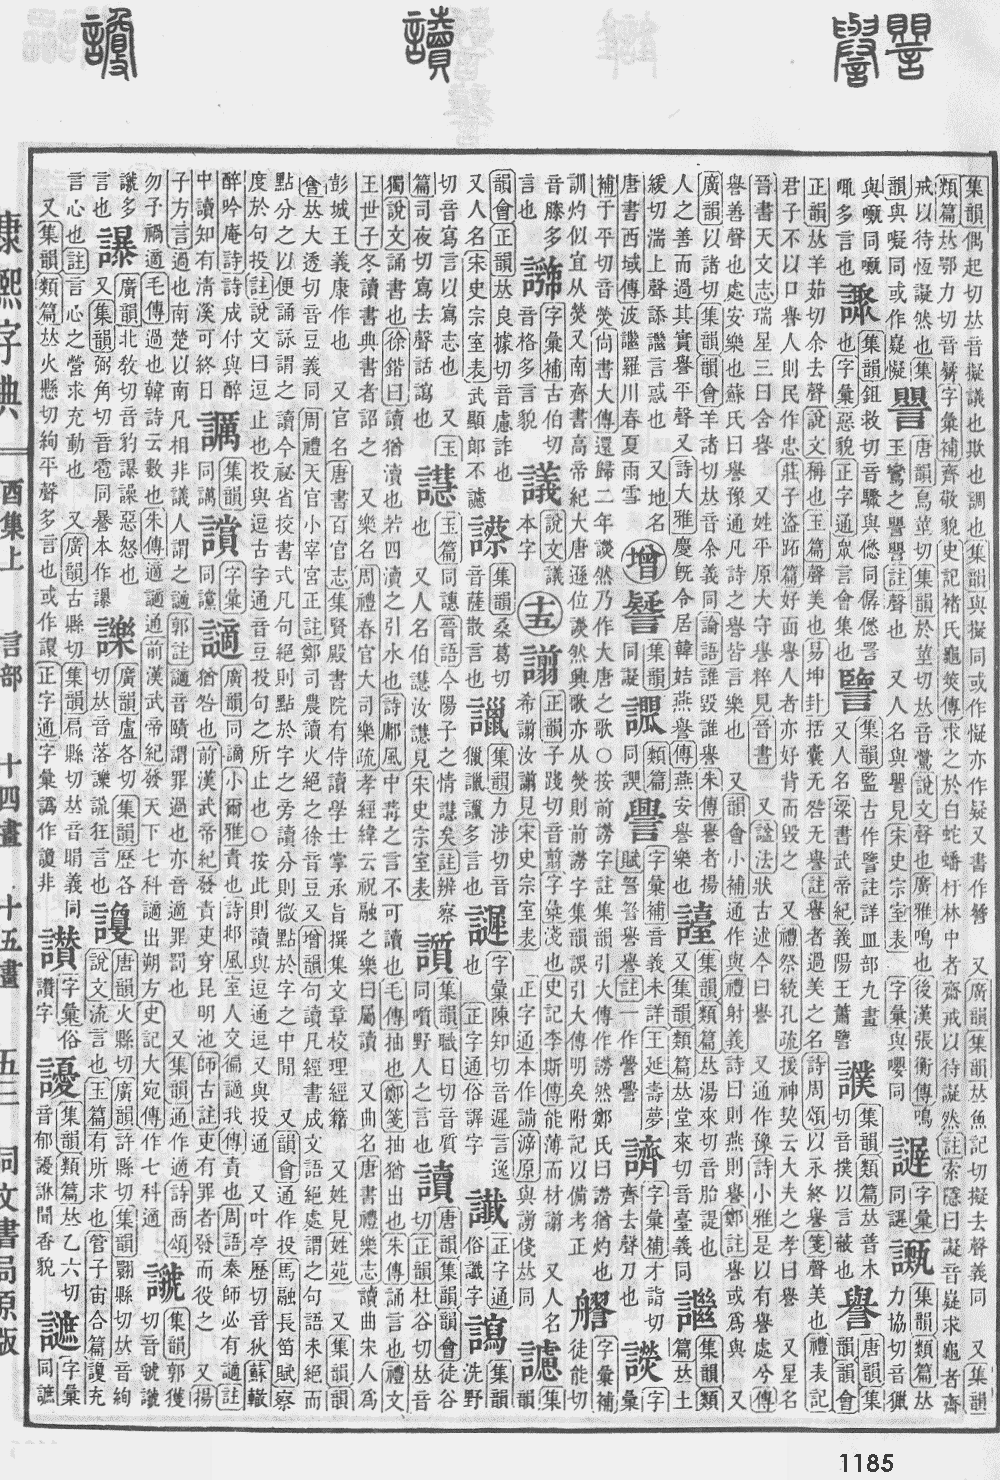 讆 譽 讀 䜋
集韻偶起切𠀤音擬議也欺也調也集韻與擬同或作㦣亦作疑又書作䜛 又廣韻集韻𠀤魚記切擬去聲義同 又集韻
類篇𠀤鄂力切音㘈字彙補齊敬貌史記褚氏龜筴傳求之於白蛇蟠杅林中者齋戒以待譺然註索隱曰譺音疑求龜者齋
戒以待恆譺然也集
韻與㘈同或作嶷㦣
譻
唐韻烏莖切集韻於莖切𠀤音鶯說文聲也廣雅鳴也後漢張衡傳鳴
玉鸞之譻譻註聲也 又人名與譻見宋史宗室表 字彙與嚶同
字彙
同
集韻類篇𠀤
力協切音獵
與嘅同嘅
吼多言也
集韻鉏救切音驟與僽同僝僽詈
也字彙惡貌正字通眾言會集也
譼
集韻監古作譼註詳皿部九畫
又人名梁書武帝紀義陽王蕭譼
集韻類篇𠀤普木
切音撲以言蔽也
譽
唐韻集
韻韻會
正韻𠀤羊茹切余去聲說文稱也玉篇聲美也易坤卦括囊无咎无譽註譽者過美之名詩周頌以永終譽箋聲美也禮表記
君子不以口譽人則民作忠莊子盜跖篇好面譽人者亦好背而毀之 又禮祭統孔疏援神契云大夫之孝曰譽 又星名
晉書天文志瑞星三曰含譽 又姓平原大守譽粹見晉書 又諡法狀古述今曰譽 又通作豫詩小雅是以有譽處兮傳
譽善聲也處安樂也蘇氏曰譽豫通凡詩之譽皆言樂也 又韻會小補通作與禮射義詩曰則燕則譽註鄭註譽或爲與 又
廣韻以諸切集韻韻會羊諸切𠀤音余義同論語誰毀誰譽朱傳譽者揚
人之善而過其實譽平聲又詩大雅慶旣令居韓姞燕譽傳燕安譽樂也
集韻類篇𠀤湯來切音胎諟也
又集韻類篇𠀤堂來切音臺義同
集韻類
篇𠀤土
緩切湍上聲
唐書西域傳波 羅川春夏雨雪
增
集韻
同譺
類篇
同
字彙補音義未詳王延壽夢
賦 譽譽註一作譽譽
字彙補才詣切
齊去聲刀也
字
彙
補于平切音熒尙書大傳還歸二年 然乃作大唐之歌○按前謗字註集韻引大傳作謗然鄭氏曰謗猶灼也
訓灼似宜从熒又南齊書高帝紀大唐遜位 然興歌亦从熒則前謗字集韻誤引大傳明矣附記以備考正
字彙補
徒能切
音滕多
言也
字彙補古伯切
音格多言貌
議
說文議
本字
十五
謭
正韻子踐切音剪字彙淺也史記李斯傳能薄而材謭 又人名
希謭汝謭見宋史宗室表 正字通本作諞謜原與謭俴𠀤同
集
韻
韻會正韻𠀤良據切音慮詐也
又人名宋史宗室表武顯郎不
集韻桑葛切
音薩散言也
集韻力涉切音
獵 多言也
字彙陳知切音遲言迻
也 正字通俗謘字
正字通
俗讖字
集韻
洗野
切音寫言以寫志也 又玉
篇司夜切寫去聲話 也
玉篇同譓晉語今陽子之情譓矣註辨察
也 又人名伯譓汝譓見宋史宗室表
集韻職日切音質
同嚍野人之言也
讀
唐韻集韻韻會徒谷
切正韻杜谷切𠀤音
獨說文誦書也徐鍇曰讀猶瀆也若四瀆之引水也詩鄘風中冓之言不可讀也毛傳抽也鄭箋抽猶出也朱傳誦言也禮文
王世子冬讀書典書者詔之 又樂名周禮春官大司樂疏孝經緯云祝融之樂曰屬讀 又曲名唐書禮樂志讀曲宋人爲
彭城王義康作也 又官名唐書百官志集賢殿書院有侍讀學士掌承旨撰集文章校理經籍 又姓見姓苑 又集韻韻
會𠀤大透切音豆義同周禮天官小宰宮正註鄭司農讀火絕之徐音豆又增韻句讀凡經書成文語絕處謂之句語未絕而
點分之以便誦詠謂之讀今祕省校書式凡句絕則點於字之旁讀分則微點於字之中閒 又韻會通作投馬融長笛賦察
度於句投註說文曰逗止也投與逗古字通音豆投句之所止也○按此則讀與逗通逗又與投通 又叶亭歷切音狄蘇轍
醉吟庵詩詩成付與醉
中讀知有淸溪可終日
集韻
同講
字彙
同讜
讁
廣韻同謫小爾雅責也詩邶風室人交徧讁我傳責也周語秦師必有讁註
猶咎也前漢武帝紀發責吏穿昆明池師古註吏有罪者發而役之 又揚
子方言過也南楚以南凡相非議人謂之讁郭註讁音賾謂罪過也亦音適罪罰也 又集韻通作適詩商頌
勿予禍適毛傳過也韓詩云數也朱傳適讁通前漢武帝紀發天下七科讁出朔方史記大宛傳作七科適
集韻郭獲
切音虢
多
言也
廣韻北敎切音豹 譟惡怒也
又集韻弼角切音雹同㬥本作
廣韻盧各切集韻歷各
切𠀤音落 謊狂言也
唐韻火縣切廣韻許縣切集韻翾縣切𠀤音絢
說文流言也玉篇有所求也管子宙合篇 充
言心也註言心之營求充動也 又廣韻古縣切集韻扃縣切𠀤音睊義同
又集韻類篇𠀤火懸切絢平聲多言也或作讂正字通字彙譌作讂非
讃
字彙俗
讚字
集韻類篇𠀤乙六切
音郁 訹聞香貌
字彙
同謶
康熙字典 酉集上 言部 十四畫 十五畫 五三 同文書局原版
1185